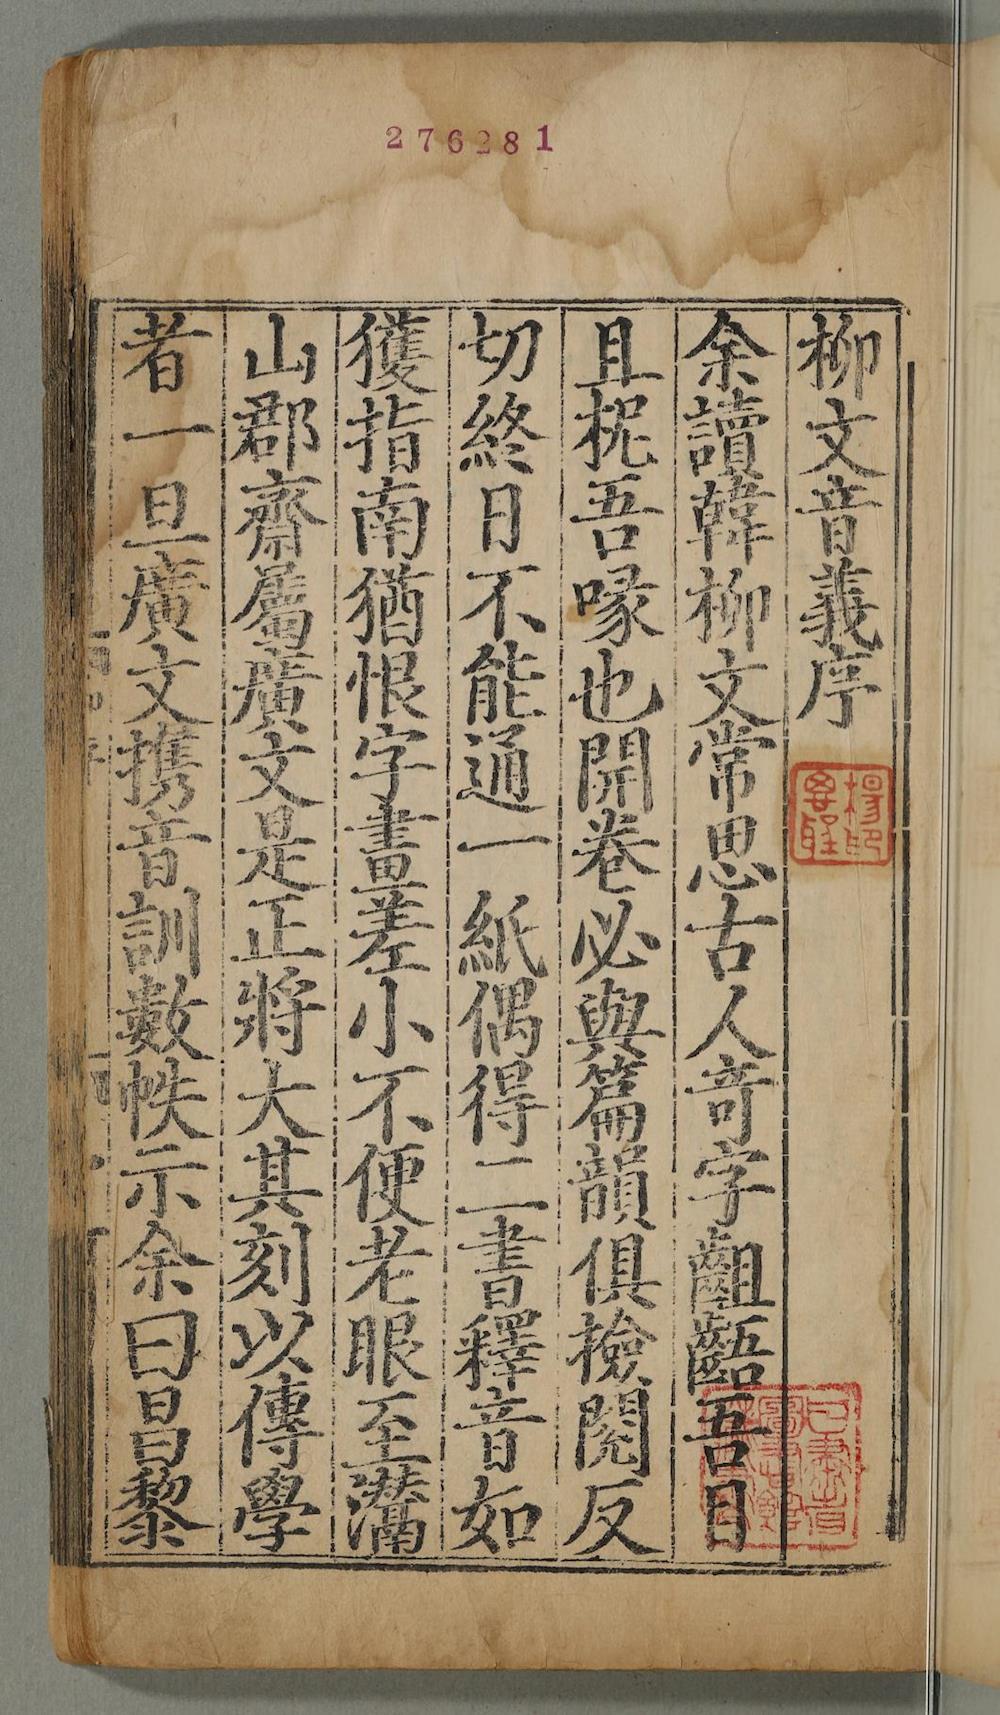 276281
柳文音義序
余讀韓柳文常思古人竒字齟齬吾目
且棿吾喙也開卷必與篇韻俱撿閱反
切終日不能通一紙偶得二書釋音如
獲指南猶恨字畫差小不便老眼至灊
山郡齋屬廣文是正將大其刻以傳學
者一旦廣文携音訓數帙示余曰昌黎